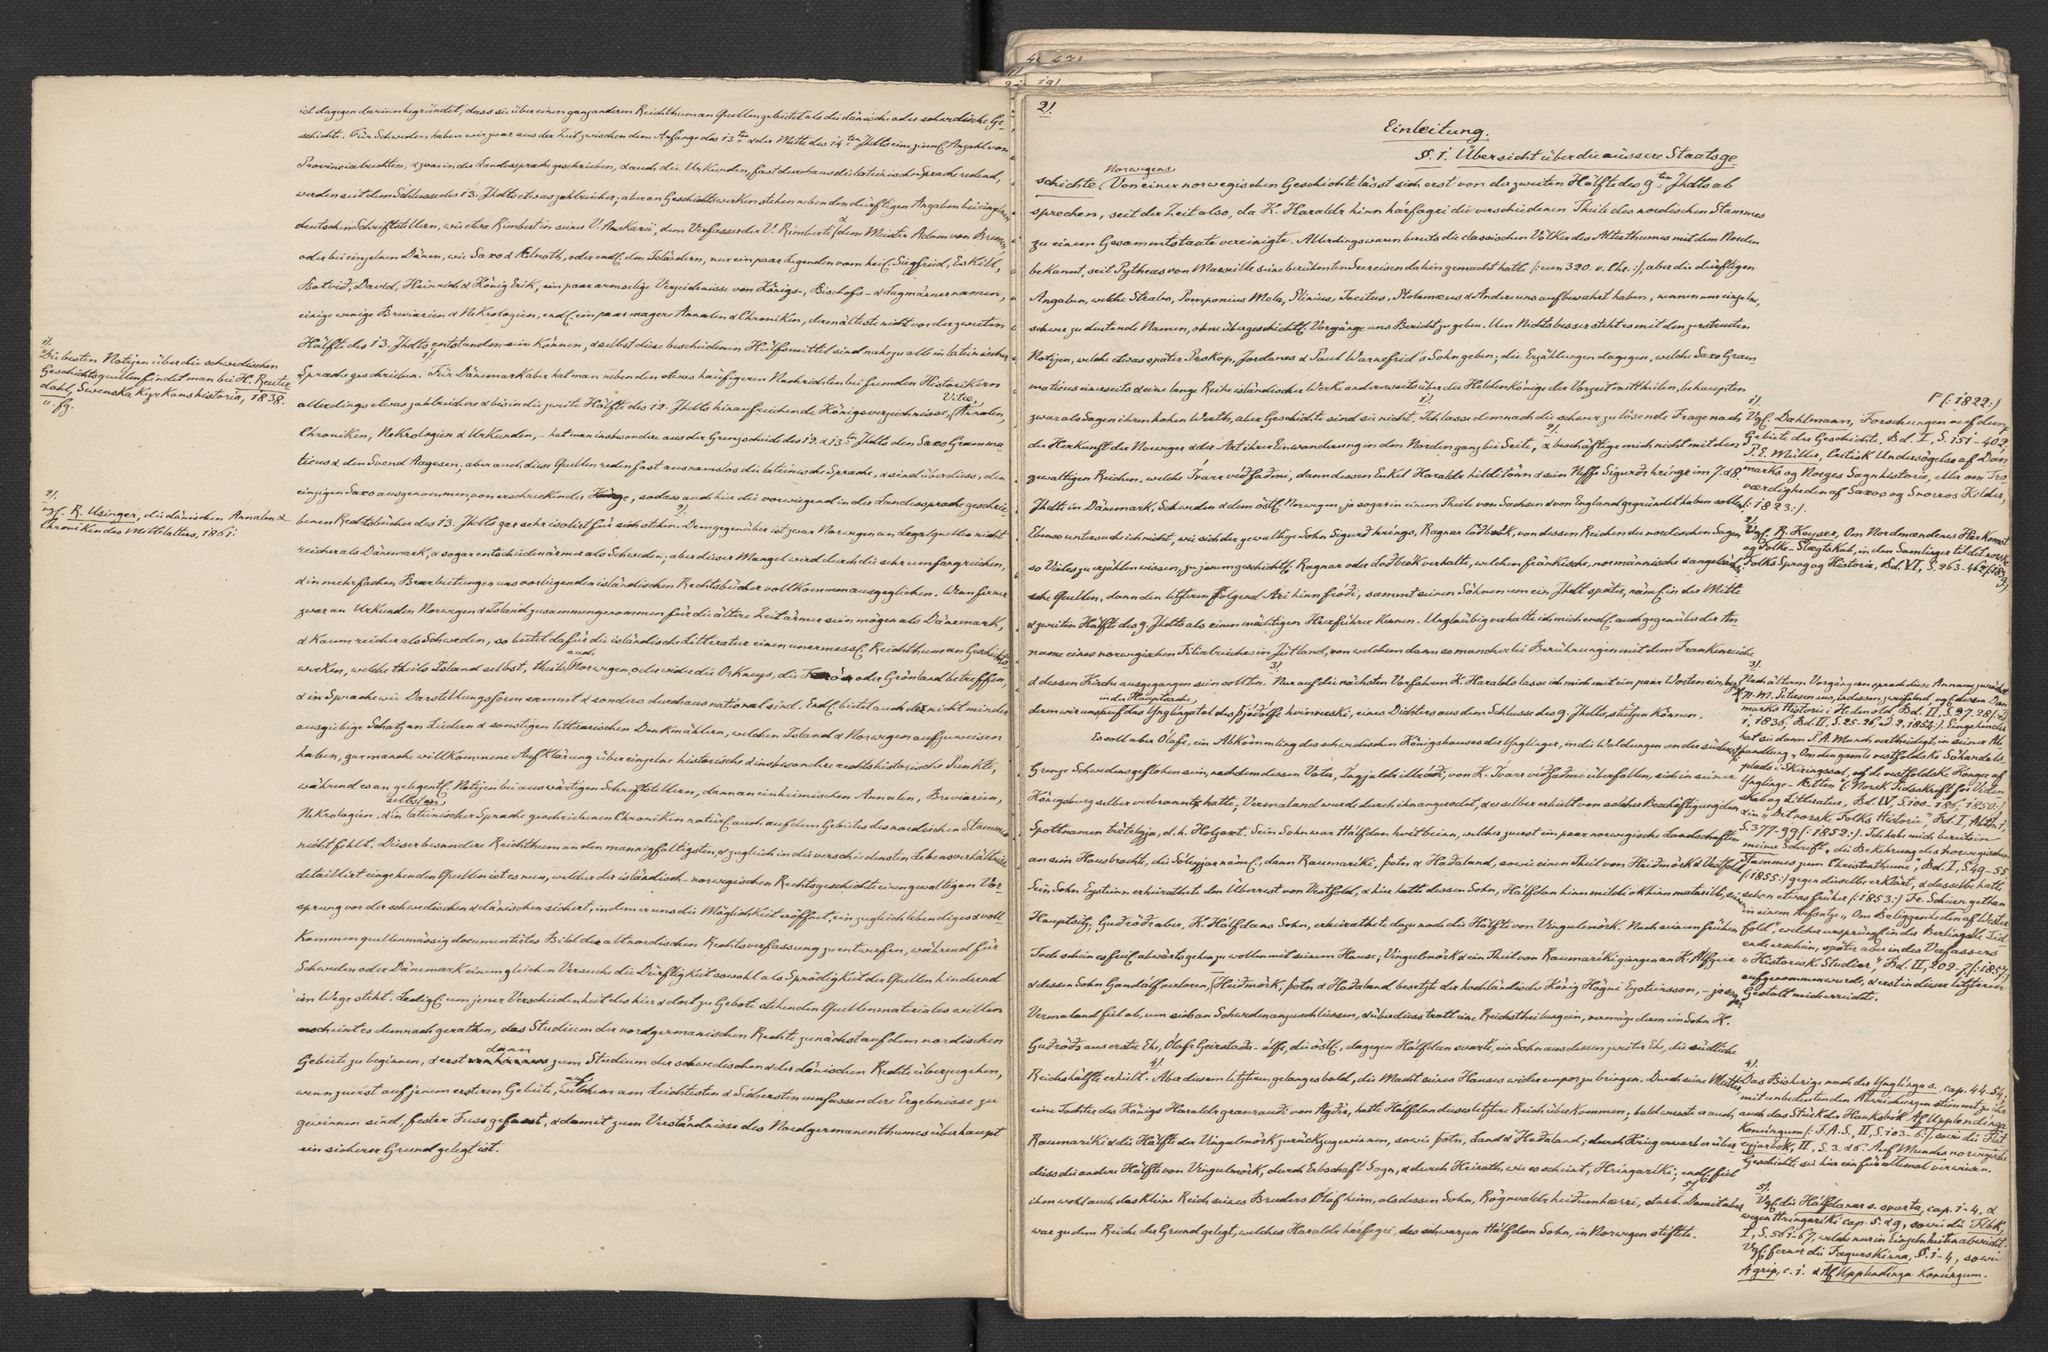 ist dagegen darinn begründet, dass sie über einen ganz anderen Reichthum an Quellen gebietet als die dänische oder schwedische Ge-
schichte. Für Schweden haben wir zwar aus der Zeit zwischen dem Anfange des 13ten & der Mitte des 14ten Jhdts eine ziemL Anzahl von
Provincialrechten, & zwar in der Landessprache geschrieben, & auch die Urkunden, fast durchaus die lateinische Sprache redend,
werden seit dem Schlusse des 13. Jhdts etwas zahlreicher; aber an Geschichtswerken stehen neben den dürftigen Angaben bei einzelnen
deutschen Schriftstellern, wie etwa Rimbert in seiner V. Anskarii, dem Verfasser der V. Rimberti & dem Meister Adam von Bremen,
oder bei einzelnen Dänen, wie Saxo & Ælnoth, oder endL den Isländern, nur ein paar Legenden vom heiL Siegfrid, Eskild,
Botvid, David, Heinrich & König Erik, ein paar armselige Verzeichnisse von Königs-, Bischofs- & Lagmännernamen,
einige wenige Breviarien & Nekrologien, endL ein paar magere Annalen & Chroniken, deren älteste nicht vor der zweiten
Hälfte des 13. Jhdts entstanden sein können, & selbst diese bescheidenen Hülfsmittel sind nahezu all in lateinischer
Sprache geschrieben. 1). Für Dänemark aber hat man neben den etwas häufigeren Nachrichten bei fremden Historikern
allerdings etwas zahlreichere & bis in die zweite Hälfte des 12. Jhdts hinaufreichende Königsverzeichnisse, Vitae, Annalen,
Chroniken, Nekrologien & Urkunden, – hat man insbesondere aus der Grenzscheide des 12. & 13ten Jhdts den Saxo Gramma-
ticus & den Svend Aagesen; aber auch diese Quellen reden fast ausnamslos die lateinische Sprache, & sind überdiess, den
einzigen Saxo ausgenommen, von erschreckender Kürze, sodass auch hier die vorwiegend in der Landessprache geschrie-
benen Rechtsbücher des 13. Jhdts gar sehr isolirt für sich stehen. 2). Dem gegenüber ist zwar Norwegen an Legalquellen nicht
reicher als Dänemark, & sogar entschieden ärmer als Schweden; aber dieser Mangel wird durch die sehr umfangreichen,
& in mehrfachen Bearbeitungen uns vorliegenden isländischen Rechtsbücher vollkommen ausgeglichen. Wenn ferner
zwar an Urkunden Norwegen & Island zusammengenommen für die ältere Zeit ärmer sein mögen als Dänemark,
& kaum reicher als Schweden, so bietet dafür die isländische Litteratur einen unermessL Reichthum an Geschichts-
werken, welche theils Island selbst, theils auch Norwegen, oder wider die Orkneys, die Færöer oder Grönland betreffen,
& in Sprache wie Darstellungsform sammt & sonders durchaus national sind. EndL bietet auch der nicht minder
ausgiebige Schatz an Liedern & sonstigen litterarischen Denkmählern, welchen Island & Norwegen aufzuweisen
haben, gar manche willkommene Aufklärung über einzelne historische & insbesondere rechtshistorische Punkte,
während es an gelegentL Notizen bei auswärtigen Schriftstellern, dann an einheimischen Annalen, Breviarien,
Nekrologien, & selbst an in lateinischer Sprache geschriebenen Chroniken natürL auch auf dem Gebiete des nordischen Stammes
nicht fehlt. Dieser besondere Reichthum an den mannigfaltigsten, & zugleich in die verschiedensten Lebensverhältnisse
detaillirt eingehenden Quellen ist es nun, welcher der isländisch-norwegischen Rechtsgeschichte einen gewaltigen Vor-
sprung vor der schwedischen & dänischen sichert, indem er uns die Möglichkeit eröffnet, ein zugleich lebendiges & voll-
kommen quellenmässig documentirtes Bild der altnordischen Rechtsverfassung zu entwerfen, während für
Schweden oder Dänemark einem gleichen Versuche die Dürftigkeit sowohl als Sprödigkeit der Quellen hindernd
im Wege steht. LedigL um jener Verschiedenheit des hier & dort zu Gebote stehenden Quellenmateriales willen
erscheint es demnach gerathen, das Studium der nordgermanischen Rechte zunächst auf dem nordischen
Gebiete zu beginnen, & erst dann zum Studium des schwedischen & des dänischen Rechts überzugehen,
wenn zuerst auf jenem ersteren Gebiete, auf welchem am leichtesten & sichersten umfassendere Ergebnisse zu
gewinnen sind, fester Fuss gefasst, & damit zum Verständnisse des Nordgermanenthumes überhaupt
ein sicherer Grund gelegt ist.
1).
Die besten Notizen über die schwedischen
Geschichtsquellen findet man bei H. Reuter-
dahl, Swenska kyrkans historia, 1838.
u. fg.
2).
vgL R. Usinger, die dänischen Annalen &
Chroniken des Mittelalters, 1861.
2).
Einleitung.
§. 1. Übersicht über die äussere Staatsge
schichte Norwegens. Von einer norwegischen Geschichte lässt sich erst von der zweiten Hälfte des 9ten Jhdts ab
sprechen, seit der Zeit also, da K. Haraldr hinn hárfagri die verschiedenen Theile des nordischen Stammes
zu einem Gesammtstaate vereinigte. Allerdings waren bereits die classischen Völker des Alterthumes mit dem Norden
bekannt, seit Pytheas von Marseille seine berühmten Seereisen dahin gemacht hatte (: um 320. v. Chr. :); aber die dürftigen
Angaben, welche Strabo, Pomponius Mela, Plinius, Tacitus, Ptolemæus & Andere uns aufbewahrt haben, nennen nur einzelne,
schwer zu deutende Namen, ohne über geschichtL Vorgänge uns Bericht zu geben. Um Nichts besser steht es mit den zerstreuten
Notizen, welche etwas später Prokop, Jordanes & Paul Warnefrid's Sohn geben; die Erzählungen dagegen, welche Saxo Gram-
maticus einerseits & eine lange Reihe isländischer Werke andererseits über die Heldenkönige der Vorzeit mittheilen, behaupten
zwar als Sagen ihren hohen Werth, aber Geschichte sind sie nicht. 1). Ich lasse demnach die schwer zu lösende Frage nach
der Herkunft der Norweger & der Art ihrer Einwanderung in den Norden ganz bei Seite, 2). & beschäftige mich nicht mit den
gewaltigen Reichen, welche Ívarr víðfaðmi, dann dessen Enkel Haraldr hilditönn & sein Neffe Sigurðr hríngr im 7. & 8.
Jhdt in Dänemark, Schweden & dem östL Norwegen, ja sogar in einem Theile von Sachsen & von England gegründet haben sollen.
Ebenso untersuche ich nicht, wie sich der gewaltige Sohn Sigurð hríngs, Ragnar loðbrók, von dessen Reichen die nordischen Sagen
so Vieles zu erzählen wissen, zu jenem geschichtL Ragnar oder Loðbrók verhalte, welchen fränkische, normännische & angelsächsi-
sche Quellen, dann den letzteren folgend Ari hinn fróði, sammt seinen Söhnen um ein Jhdt später, nämL in der Mitte
& zweiten Hälfte des 9. Jhdts als einen mächtigen Heerführer kennen. Ungläubig verhalte ich mich endL auch gegenüber der An-
name eines norwegischen Filialreiches in Jütland, von welchem dann so mancherlei Berührungen mit dem Frankenreiche
& dessen Kirche ausgegangen sein sollten. 3). Nur auf die nächsten Vorfahren K. Haralds lasse ich mich mit ein paar Worten ein, bezügL
deren wir uns in der Hauptsache auf das Ynglíngatal des Þjóðólfr hvinverski, eines Dichters aus dem Schlusse des 9. Jhdts, stützen können.
Es soll aber Ólafr, ein Abkömmling des schwedischen Königshauses der Ynglinger, in die Waldungen an der südwestL
Grenze Schwedens geflohen sein, nachdem dessen Vater, Íngjaldr illráði, von K. Ívarr víðfaðmi überfallen, sich in seiner
Königsburg selber verbrannt hatte; Vermaland wurde durch ihn angerodet, & er selber erhielt von solcher Beschäftigung den
Spottnamen trételgja, d. h. Holzaxt. Sein Sohn war Hálfdan hvítbeinn, welcher zuerst ein paar norwegische Landschaften
an sein Haus brachte, die Sóleyjar nämL, dann Raumaríki, Þotn & Haðaland, sowie einen Theil von Heiðmörk & Vestfold.
Sein Sohn Eysteinn erheirathete den Überrest von Vestfold, & hier hatte dessen Sohn, Hálfdan hinn mildi ok hinn matarilli, seinen
Hauptsitz; Guðröðr aber, K. Hálfdans Sohn, erheirathete dazu noch die Hälfte von Vingulmörk. Nach seinem frühen
Tode schien es freiL abwärts gehen zu wollen mit seinem Hause; Vingulmörk & ein Theil von Raumaríki gingen an K. Álfgeir
& dessen Sohn Gandálf verloren, Heiðmörk, Þotn & Haðaland besetzte der hochländische König Högni Eysteinsson, – ja sogar
Vermaland fiel ab, um sich an Schweden anzuschliessen, & überdiess tratt eine Reichstheilung ein, vermöge deren ein Sohn K.
Guðröðs aus erster Ehe, Ólafr Geirstaða-álfr, die östL, dagegen Hálfdan svarti, ein Sohn aus dessen zweiter Ehe, die südliche
Reichshälfte erhielt. 4). Aber diesem letzteren gelang es bald, die Macht seines Hauses wider empor zu bringen. Durch seine Mutter,
eine Tochter des Königs Haraldr granrauði von Agðir, hatte Hálfdan dieses letztere Reich überkommen; bald wusste er auch
Raumaríki & die Hälfte der Vingulmörk zurückzugewinnen, sowie Þotn, Land & Haðaland; durch Krieg erwarb er über-
diess die andere Hälfte von Vingulmörk, durch Erbschaft Sogn, & durch Heirath, wie es scheint, Hringaríki; endL fiel
ihm wohl auch das kleine Reich seines Bruders Ólaf heim, als dessen Sohn, Rögnvaldr heiðumhærri, starb. 5). Damit aber
war zu dem Reiche der Grund gelegt, welches Haraldr hárfagri, des schwarzen Hálfdan Sohn, in Norwegen stiftete.
Γ (: 1822 :)
1).
VgL Dahlmann, Forschungen auf dem
Gebiete der Geschichte, Bd. I, S. 151–402;
P. E. Müller, Critisk Undersögelse af Dan-
marks og Norges Sagnhistorie, eller om Tro-
værdigheden af Saxos og Snorros Kilder,
(: 1823 :).
2).
VgL R. Keyser, Om Nordmændenes Herkomst
og Folke-Slægtskab, in den Samlinger til det norske
Folks Sprog og Historie, Bd. VI, S. 263–462 (: 1839 :).
3).
Nach älteren Vorgängern sprach diese Anname zunächst
N. M. Petersen aus, indessen zweifelnd, vgL dessen Dan-
marks Historie i Hedenold, Bd. II, S. 27–28 (:
1, 1836, Bd. II, S. 25–26, A. 2, 1854 :). Eingehender
hat sie dann P. A. Munch vertheidigt, in seiner Ab-
handlung, Om den gamle vestfoldske Söhandels-
plads i Skiringssal, og de vestfoldske Konger af
Ynglinge-Ætten (: Norsk Tidsskrift for Viden-
skab og Litteratur, Bd. IV, S. 100–186, 1850 :)
& in „Det norske Folks Historie“, Bd. I, Abth. 1,
S. 377–99 (: 1852 :). Ich habe mich bereits in
meiner Schrift, „die Bekehrung des norwegischen
Stammes zum Christenthume“, Bd. I, S. 49–55
(: 1855 :) gegen dieselbe erklärt, & dasselbe hatte
schon etwas früher (: 1853 :) Fr. Schiern gethan
in einem Aufsatze, „Om Beliggenheden af Wester-
fold“, welcher ursprüngL in der Berlingske Tid-
ende erschien, später aber in des Verfassers
„Historiske Studier“, Bd. II, 202–7 (: 1857 :)
aufgenommen wurde, & erst in dieser letzteren
Gestalt mich erreichte.
4).
Das Bisherige nach der Ynglínga s. cap. 44–54;
mit unbedeutenden Abweichungen stimmt zu ihr
auch das Stück der Hauksbók Af Upplendínga
konúngum (: F. A. S., II, S. 103–6 :) sowie die Flat-
eyjarbók, II, S. 3. & 6. Auf Munchs norwegische
Geschichte sei hier ein für allemal verwiesen.
5).
VgL die Hálfdanar s. svarta, cap. 1–4, &
wegen Hringaríki cap. 5. & 9, sowie die Flbk,
I, S. 561–67, welche nur in Einzelnheiten abweicht.
VgL ferner die Fagrskinna, §. 1–4, sowie
Ágrip, c. 1. & Af Upplendínga konúngum.